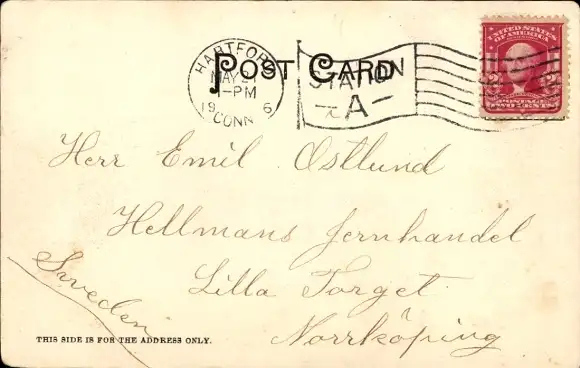 POST CARD
HARTFORD
1-PM
CONN
STATION
A
UNITED STATES
OF AMERICA
POSTAGE
TWO CENTS
Herr Emil Ostlund
Hellmans Jernhandel
Lilla Torget
Norrköping
Sweden
THIS SIDE IS FOR THE ADDRESS ONLY.